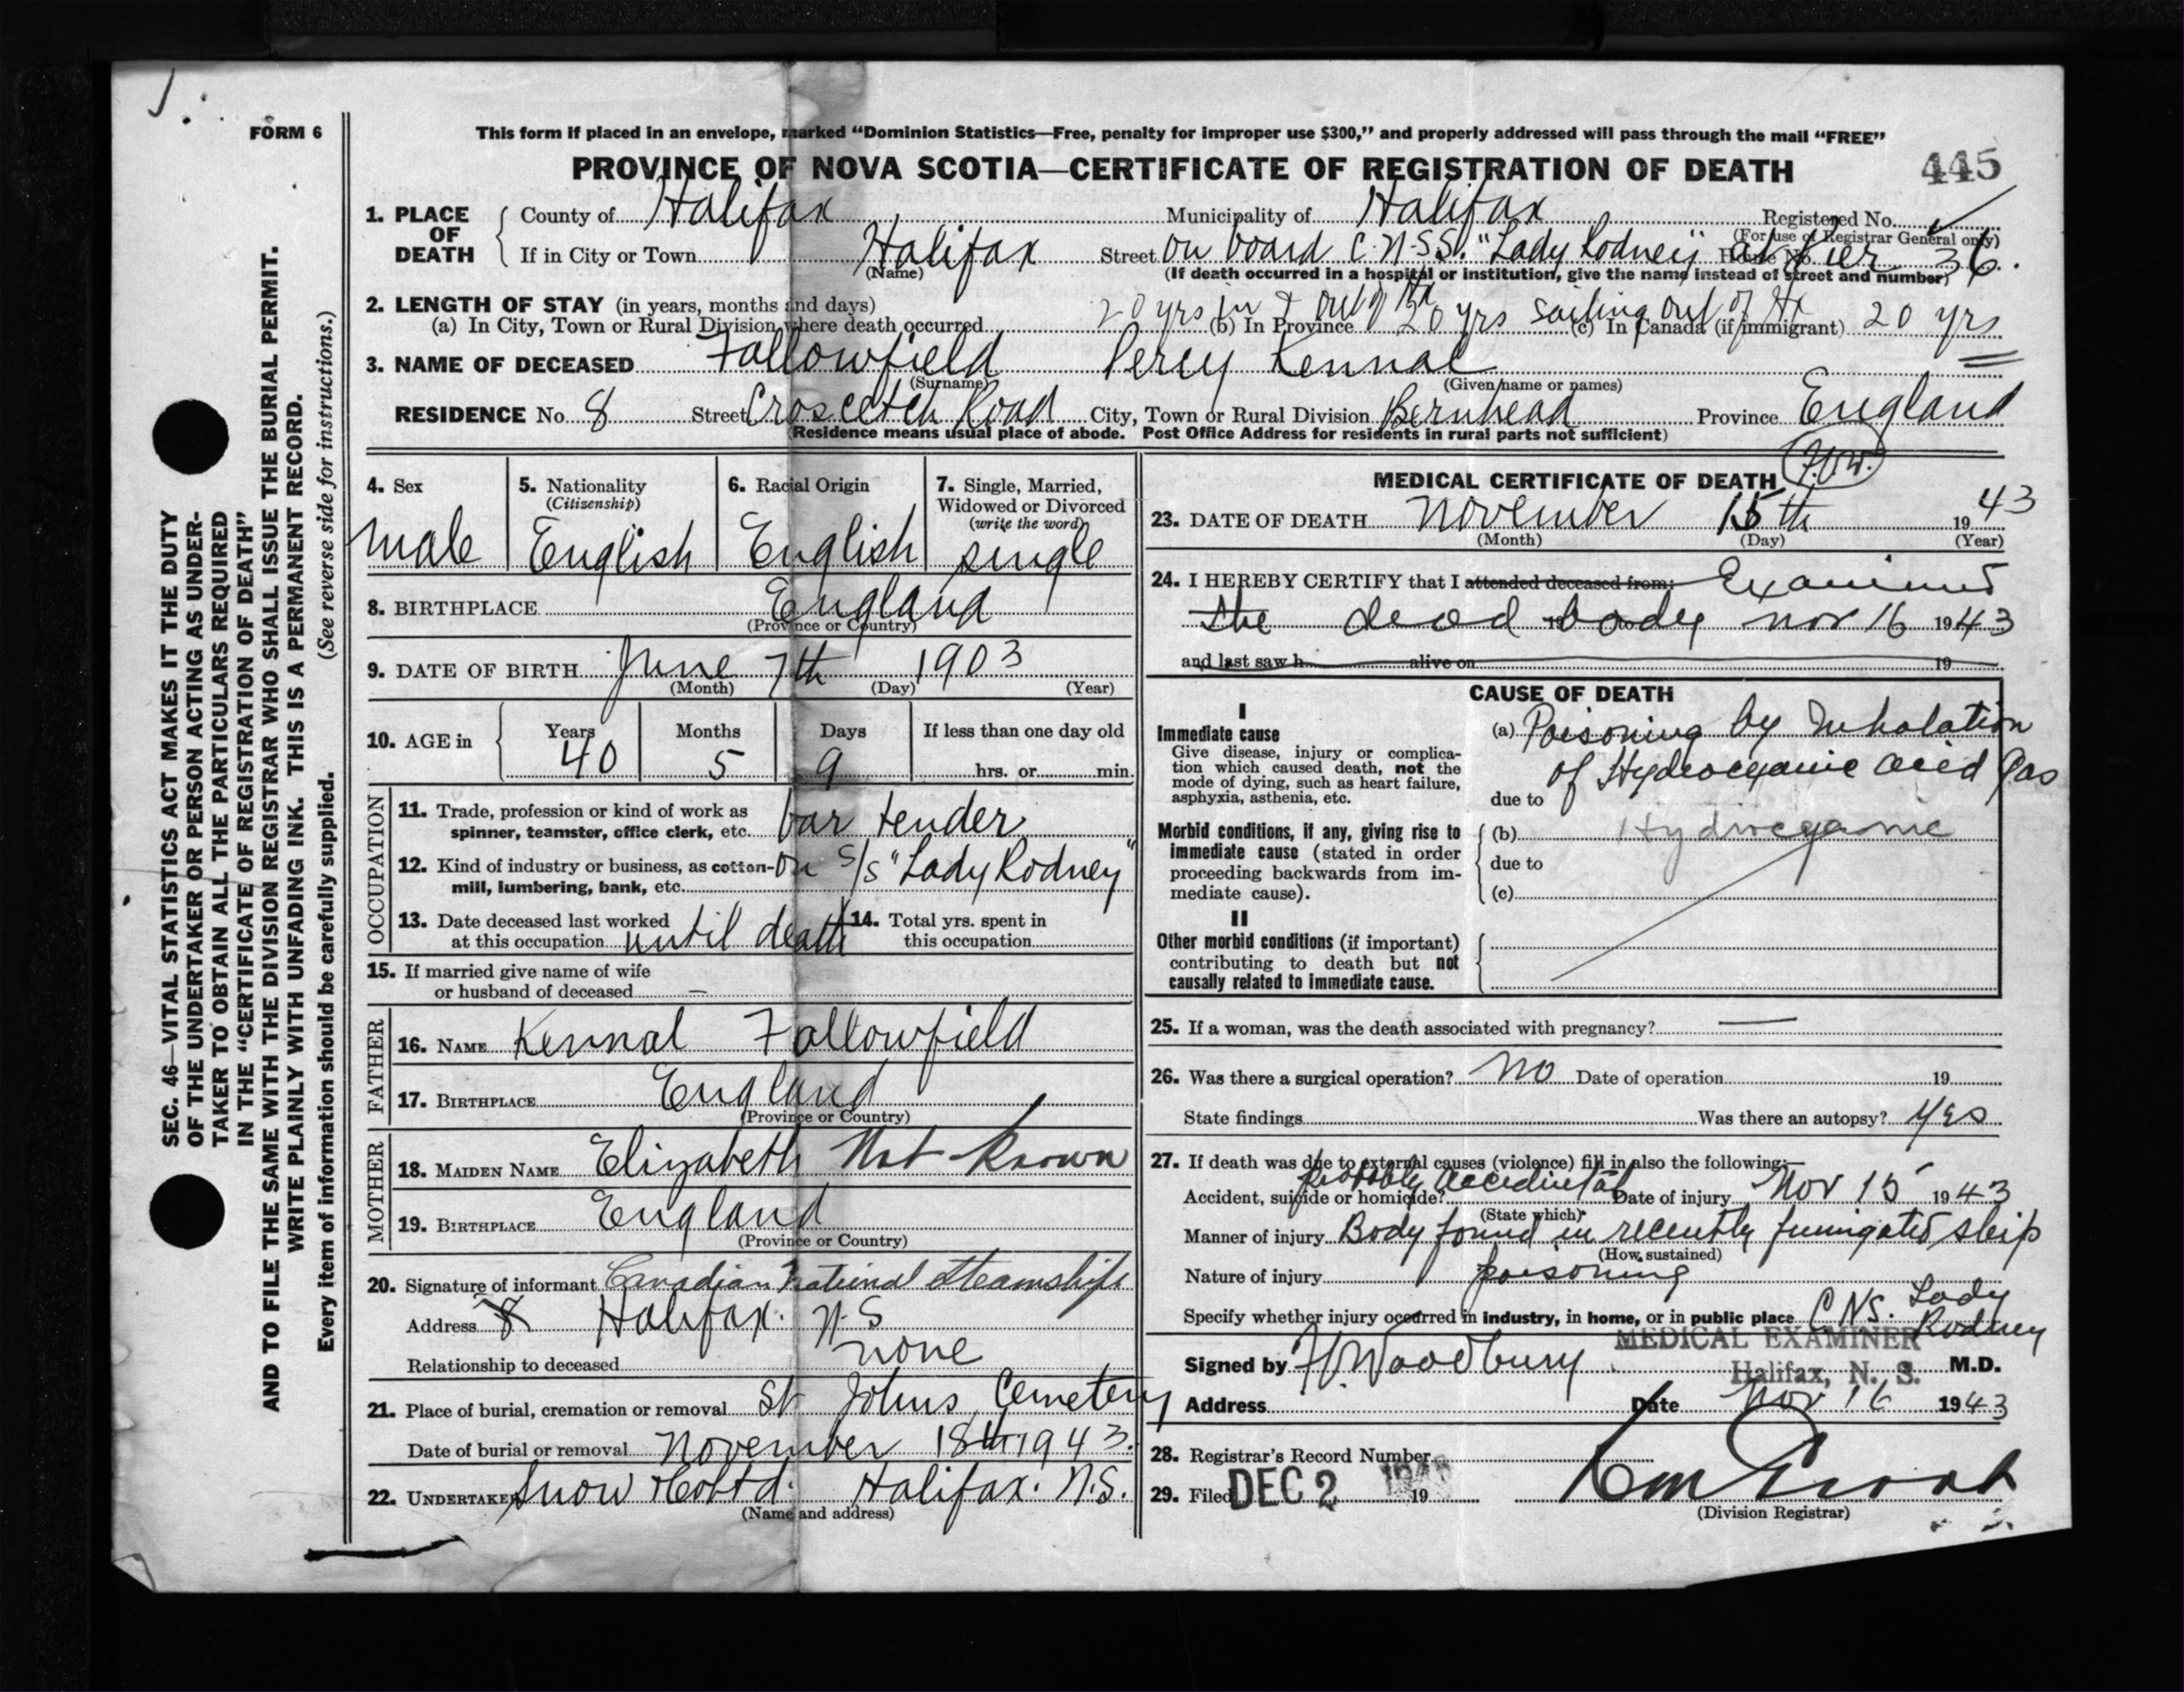 FORM 6
This form if placed in an envelope, marked “Dominion Statistics—Free, penalty for improper use $300,” and properly addressed will pass through the mail “FREE”
PROVINCE OF NOVA SCOTIA—CERTIFICATE OF REGISTRATION OF DEATH
445
1. PLACE OF DEATH
County of Halifax Municipality of Halifax Registered No.
(For use of Registrar General only)
If in City or Town Halifax Street on board C.N.SS. "Lady Rodney" at Pier 36. House No.
(Name) (If death occurred in a hospital or institution, give the name instead of street and number)
2. LENGTH OF STAY (in years, months and days)
(a) In City, Town or Rural Division where death occurred 20 yrs in & out of Hx (b) In Province 20 yrs sailing out of Hx (c) In Canada (if immigrant) 20 yrs
3. NAME OF DECEASED Fallowfield Percy Kennal
(Surname) (Given name or names)
RESIDENCE No. 8 Street Road City, Town or Rural Division Province England
(Residence means usual place of abode. Post Office Address for residents in rural parts not sufficient)
4. Sex
male
5. Nationality
(Citizenship)
English
6. Racial Origin
English
7. Single, Married,
Widowed or Divorced
(write the word)
single
8. BIRTHPLACE England
(Province or Country)
9. DATE OF BIRTH June 7th 1903
(Month) (Day) (Year)
10. AGE in
Years Months Days If less than one day old
40 5 9 hrs. or min.
OCCUPATION
11. Trade, profession or kind of work as
spinner, teamster, office clerk, etc. bar tender
12. Kind of industry or business, as cotton-
mill, lumbering, bank, etc. On S/S "Lady Rodney"
13. Date deceased last worked
at this occupation until death
14. Total yrs. spent in
this occupation
15. If married give name of wife
or husband of deceased —
FATHER
16. NAME Kennal Fallowfield
17. BIRTHPLACE England
(Province or Country)
MOTHER
18. MAIDEN NAME Elizabeth Not Known
19. BIRTHPLACE England
(Province or Country)
20. Signature of informant Canadian National Steamships
Address 8 Halifax. N.S
Relationship to deceased none
21. Place of burial, cremation or removal St Johns Cemetery
Date of burial or removal November 18th 1943.
22. UNDERTAKER Snow & Co Ltd. Halifax. N.S.
(Name and address)
MEDICAL CERTIFICATE OF DEATH
23. DATE OF DEATH November 15th 1943
(Month) (Day) (Year)
24. I HEREBY CERTIFY that I attended deceased from: Examined
the dead body Nov 16 1943
and last saw h alive on 19
CAUSE OF DEATH
I
Immediate cause
Give disease, injury or complica-
tion which caused death, not the
mode of dying, such as heart failure,
asphyxia, asthenia, etc.
(a) Poisoning by Inhalation
of Hydrocyanic acid Gas
due to
Morbid conditions, if any, giving rise to
immediate cause (stated in order
proceeding backwards from im-
mediate cause).
(b) Hydrocyanic
due to
(c)
II
Other morbid conditions (if important)
contributing to death but not
causally related to immediate cause.
25. If a woman, was the death associated with pregnancy? —
26. Was there a surgical operation? No Date of operation 19
State findings Was there an autopsy? Yes
27. If death was due to external causes (violence) fill in also the following:—
Accident, suicide or homicide? Probably accidental Date of injury Nov 15 1943
(State which)
Manner of injury Body found in recently fumigated ship
(How sustained)
Nature of injury poisoning
Specify whether injury occurred in industry, in home, or in public place C.N.S. Lady Rodney
MEDICAL EXAMINER
Signed by Woodbury Halifax, N. S. M.D.
Address Date Nov 16 1943
28. Registrar's Record Number
29. Filed DEC 2 1943 19
(Division Registrar)
SEC. 46—VITAL STATISTICS ACT MAKES IT THE DUTY
OF THE UNDERTAKER OR PERSON ACTING AS UNDER-
TAKER TO OBTAIN ALL THE PARTICULARS REQUIRED
IN THE “CERTIFICATE OF REGISTRATION OF DEATH”
AND TO FILE THE SAME WITH THE DIVISION REGISTRAR WHO SHALL ISSUE THE BURIAL PERMIT.
WRITE PLAINLY WITH UNFADING INK. THIS IS A PERMANENT RECORD.
Every item of information should be carefully supplied. (See reverse side for instructions.)